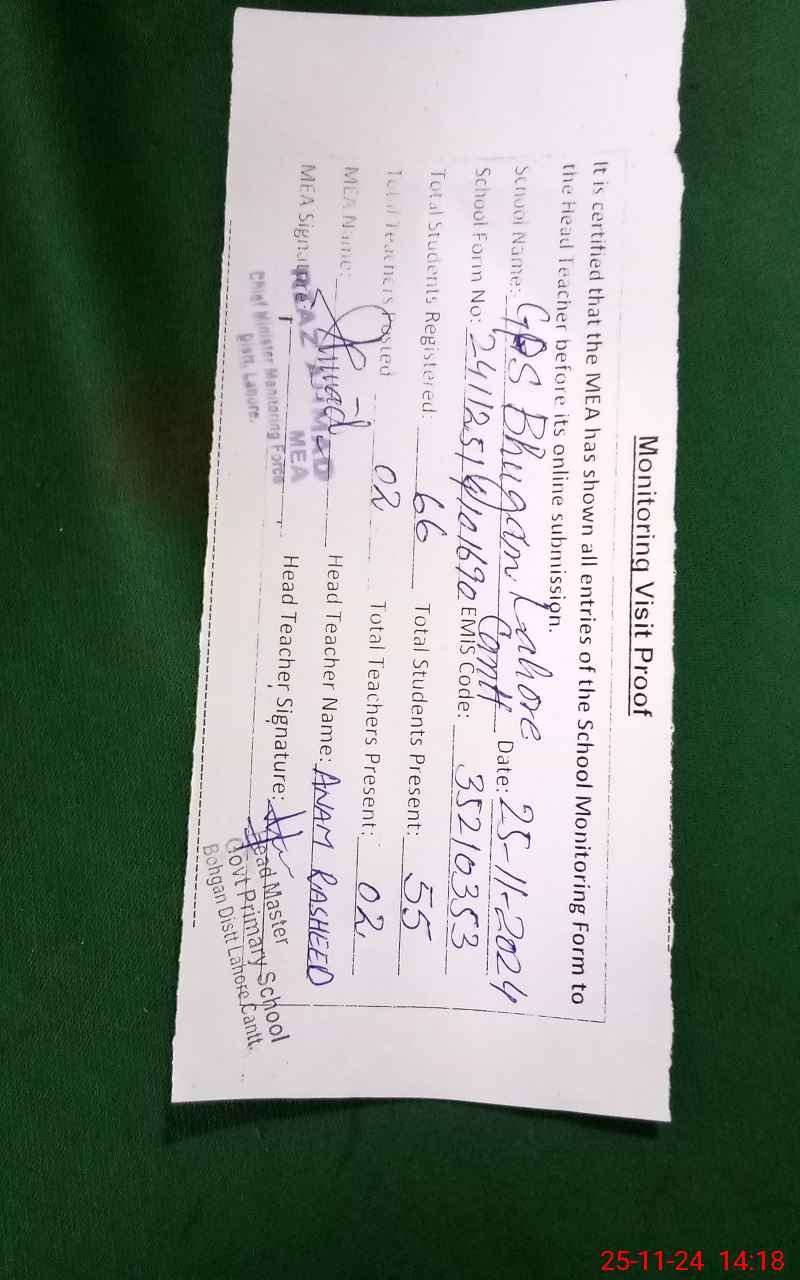 Monitoring Visit Proof
It is certified that the MEA has shown all entries of the School Monitoring Form to
the Head Teacher before its online submission.
School Name: GPS Bhugan Lahore Cantt Date: 25-11-2024
School Form No: EMIS Code: 35210353
Total Students Registered: 66 Total Students Present: 55
Total Teachers Posted 02 Total Teachers Present: 02
MEA Name: Head Teacher Name: ANAM RASHEED
MEA Signature: Head Teacher Signature:
MEA
Chief Minister Monitoring Force
Distt. Lahore.
Head Master
Govt Primary School
Bohgan Distt Lahore Cantt.
25-11-24 14:18